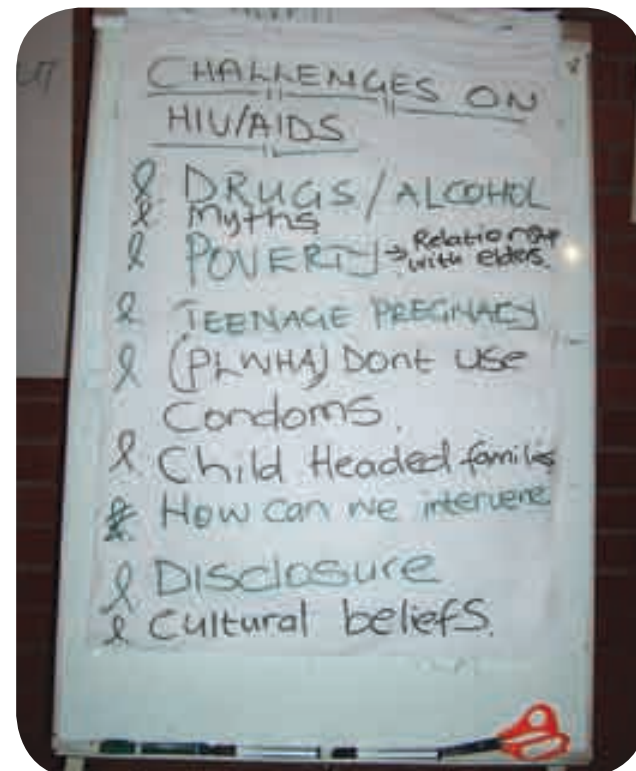 CHALLENGES ON
HIV/AIDS
DRUGS/ALCOHOL
Myths
POVERTY → Relationship
with elders.
TEENAGE PREGNACY
(PLWHA) Dont use
Condoms.
Child Headed families
How can we intervene
Disclosure
Cultural beliefs.